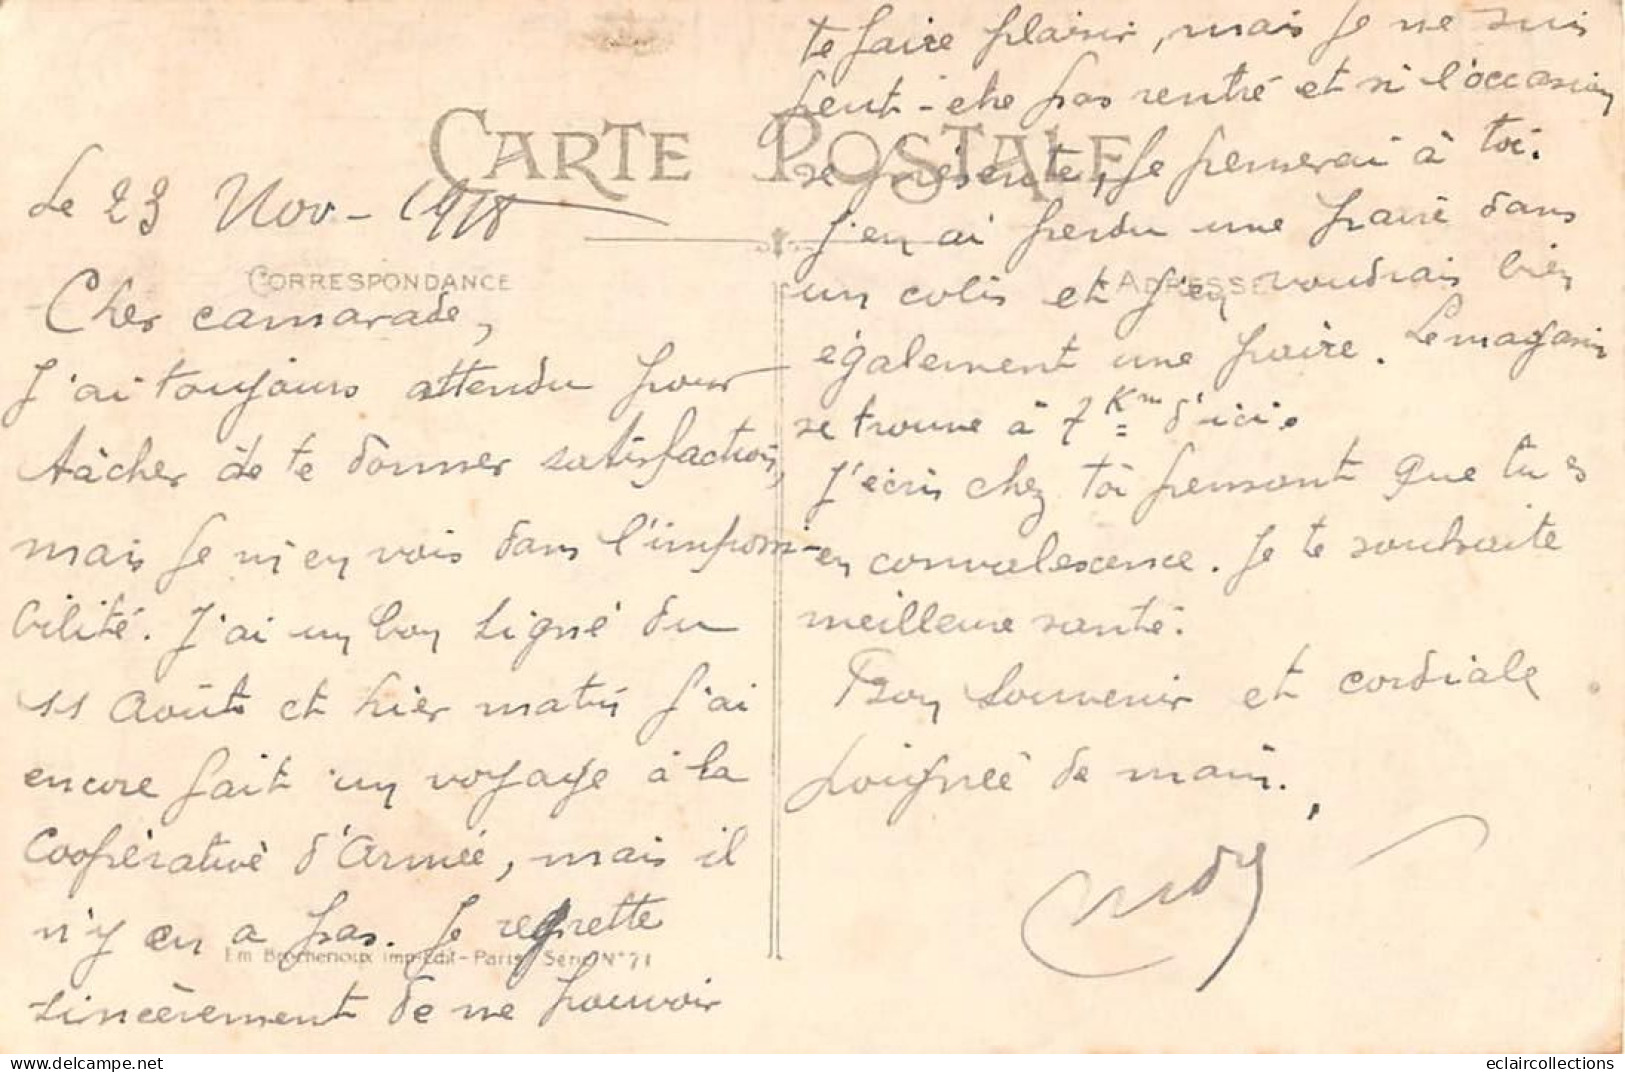 CARTE POSTALE
Le 23 Nov - 1918
CORRESPONDANCE
Cher camarade,
J'ai toujours attendu pour
tâcher de te donner satisfaction,
mais je m'en vois dans l'impossi-
bilité. J'ai un bon signé du
11 Août et hier matin j'ai
encore fait un voyage à la
Coopérative d'Armée, mais il
n'y en a pas. Je regrette
Em Brocherioux imp-Edit - Paris Série N° 71
sincèrement de ne pouvoir
te faire plaisir, mais je ne suis
peut-être pas rentré et si l'occasion
se présente, je penserai à toi.
J'en ai perdu une paire dans
ADRESSE
un colis et j'en voudrais bien
également une paire. Le magasin
se trouve à 7 Km d'ici.
J'écris chez toi pensant que tu es
en convalescence. Je te souhaite
meilleure santé.
Bon souvenir et cordiale
poignée de main.
eclaircollections